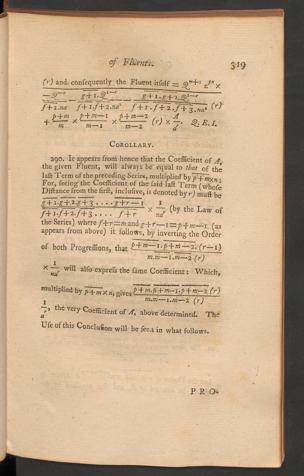 of Fluents. 319
(r) and consequently the Fluent itself = Q^{n+1} z^{pn} ×
f+1.na f+1.f+2.na² f+1.f+2.f+3.na³ (r)
+ p+m/m × p+m−1/m−1 × p+m−2/m−2 (r) × A/a^r. Q. E. I.
COROLLARY.
290. It appears from hence that the Coefficient of A,
the given Fluent, will always be equal to that of the
last Term of the preceding Series, multiplied by p+m×n;
For, seeing the Coefficient of the said last Term (whose
Distance from the first, inclusive, is denoted by r) must be
g+1.g+2.g+3 .... g+r−1/f+1.f+2.f+3 .... f+r × 1/na^r (by the Law of
the Series) where f+r=m and g+r−1=p+m−1 (as
appears from above) it follows, by inverting the Order
of both Progressions, that p+m−1.p+m−2.(r−1)/m.m−1.m−2 (r)
× 1/na^r will also express the same Coefficient: Which,
multiplied by p+m×n, gives p+m.p+m−1.p+m−2 (r)/m.m−1.m−2 (r) ×
1/a^r, the very Coefficient of A, above determined. The
Use of this Conclusion will be seen in what follows.
PRO-